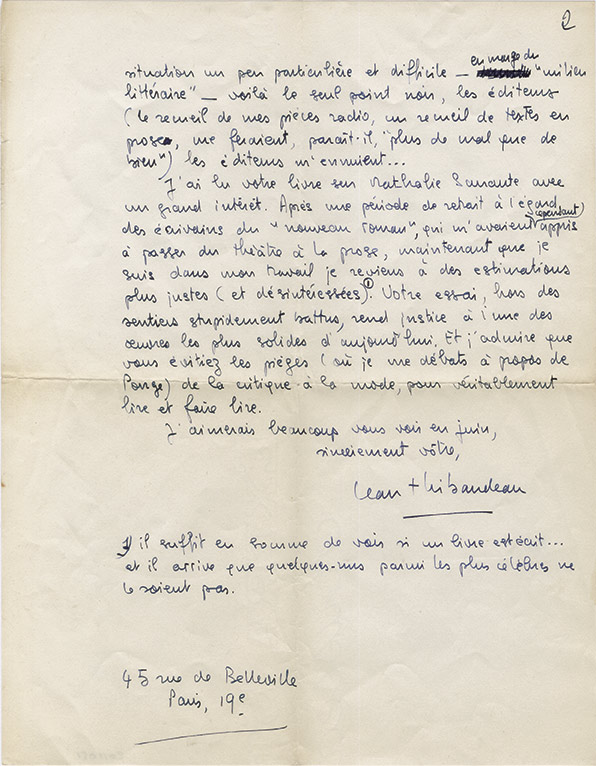 2
situation un peu particulière et difficile — en marge du "milieu
littéraire" — voilà le seul point noir, les éditeurs
(le recueil de mes pièces radio, un recueil de textes en
prose, me feraient, paraît-il, "plus de mal que de
bien") les éditeurs m'ennuient...
J'ai lu votre livre sur Nathalie Sarraute avec
un grand intérêt. Après une période de retrait à l'égard
des écrivains du "nouveau roman", qui m'avaient (cependant) appris
à passer du théâtre à la prose, maintenant que je
suis dans mon travail je reviens à des estimations
plus justes (et désintéressées)①. Votre essai, hors des
sentiers stupidement battus, rend justice à l'une des
œuvres les plus solides d'aujourd'hui. Et j'admire que
vous évitiez les pièges (où je me débats à propos de
Ponge) de la critique à la mode, pour véritablement
lire et faire lire.
J'aimerais beaucoup vous voir en juin,
sincèrement vôtre,
Jean Thibaudeau
1) il suffit en somme de voir si un livre est écrit...
et il arrive que quelques-uns parmi les plus célèbres ne
le soient pas.
45 rue de Belleville
Paris, 19e